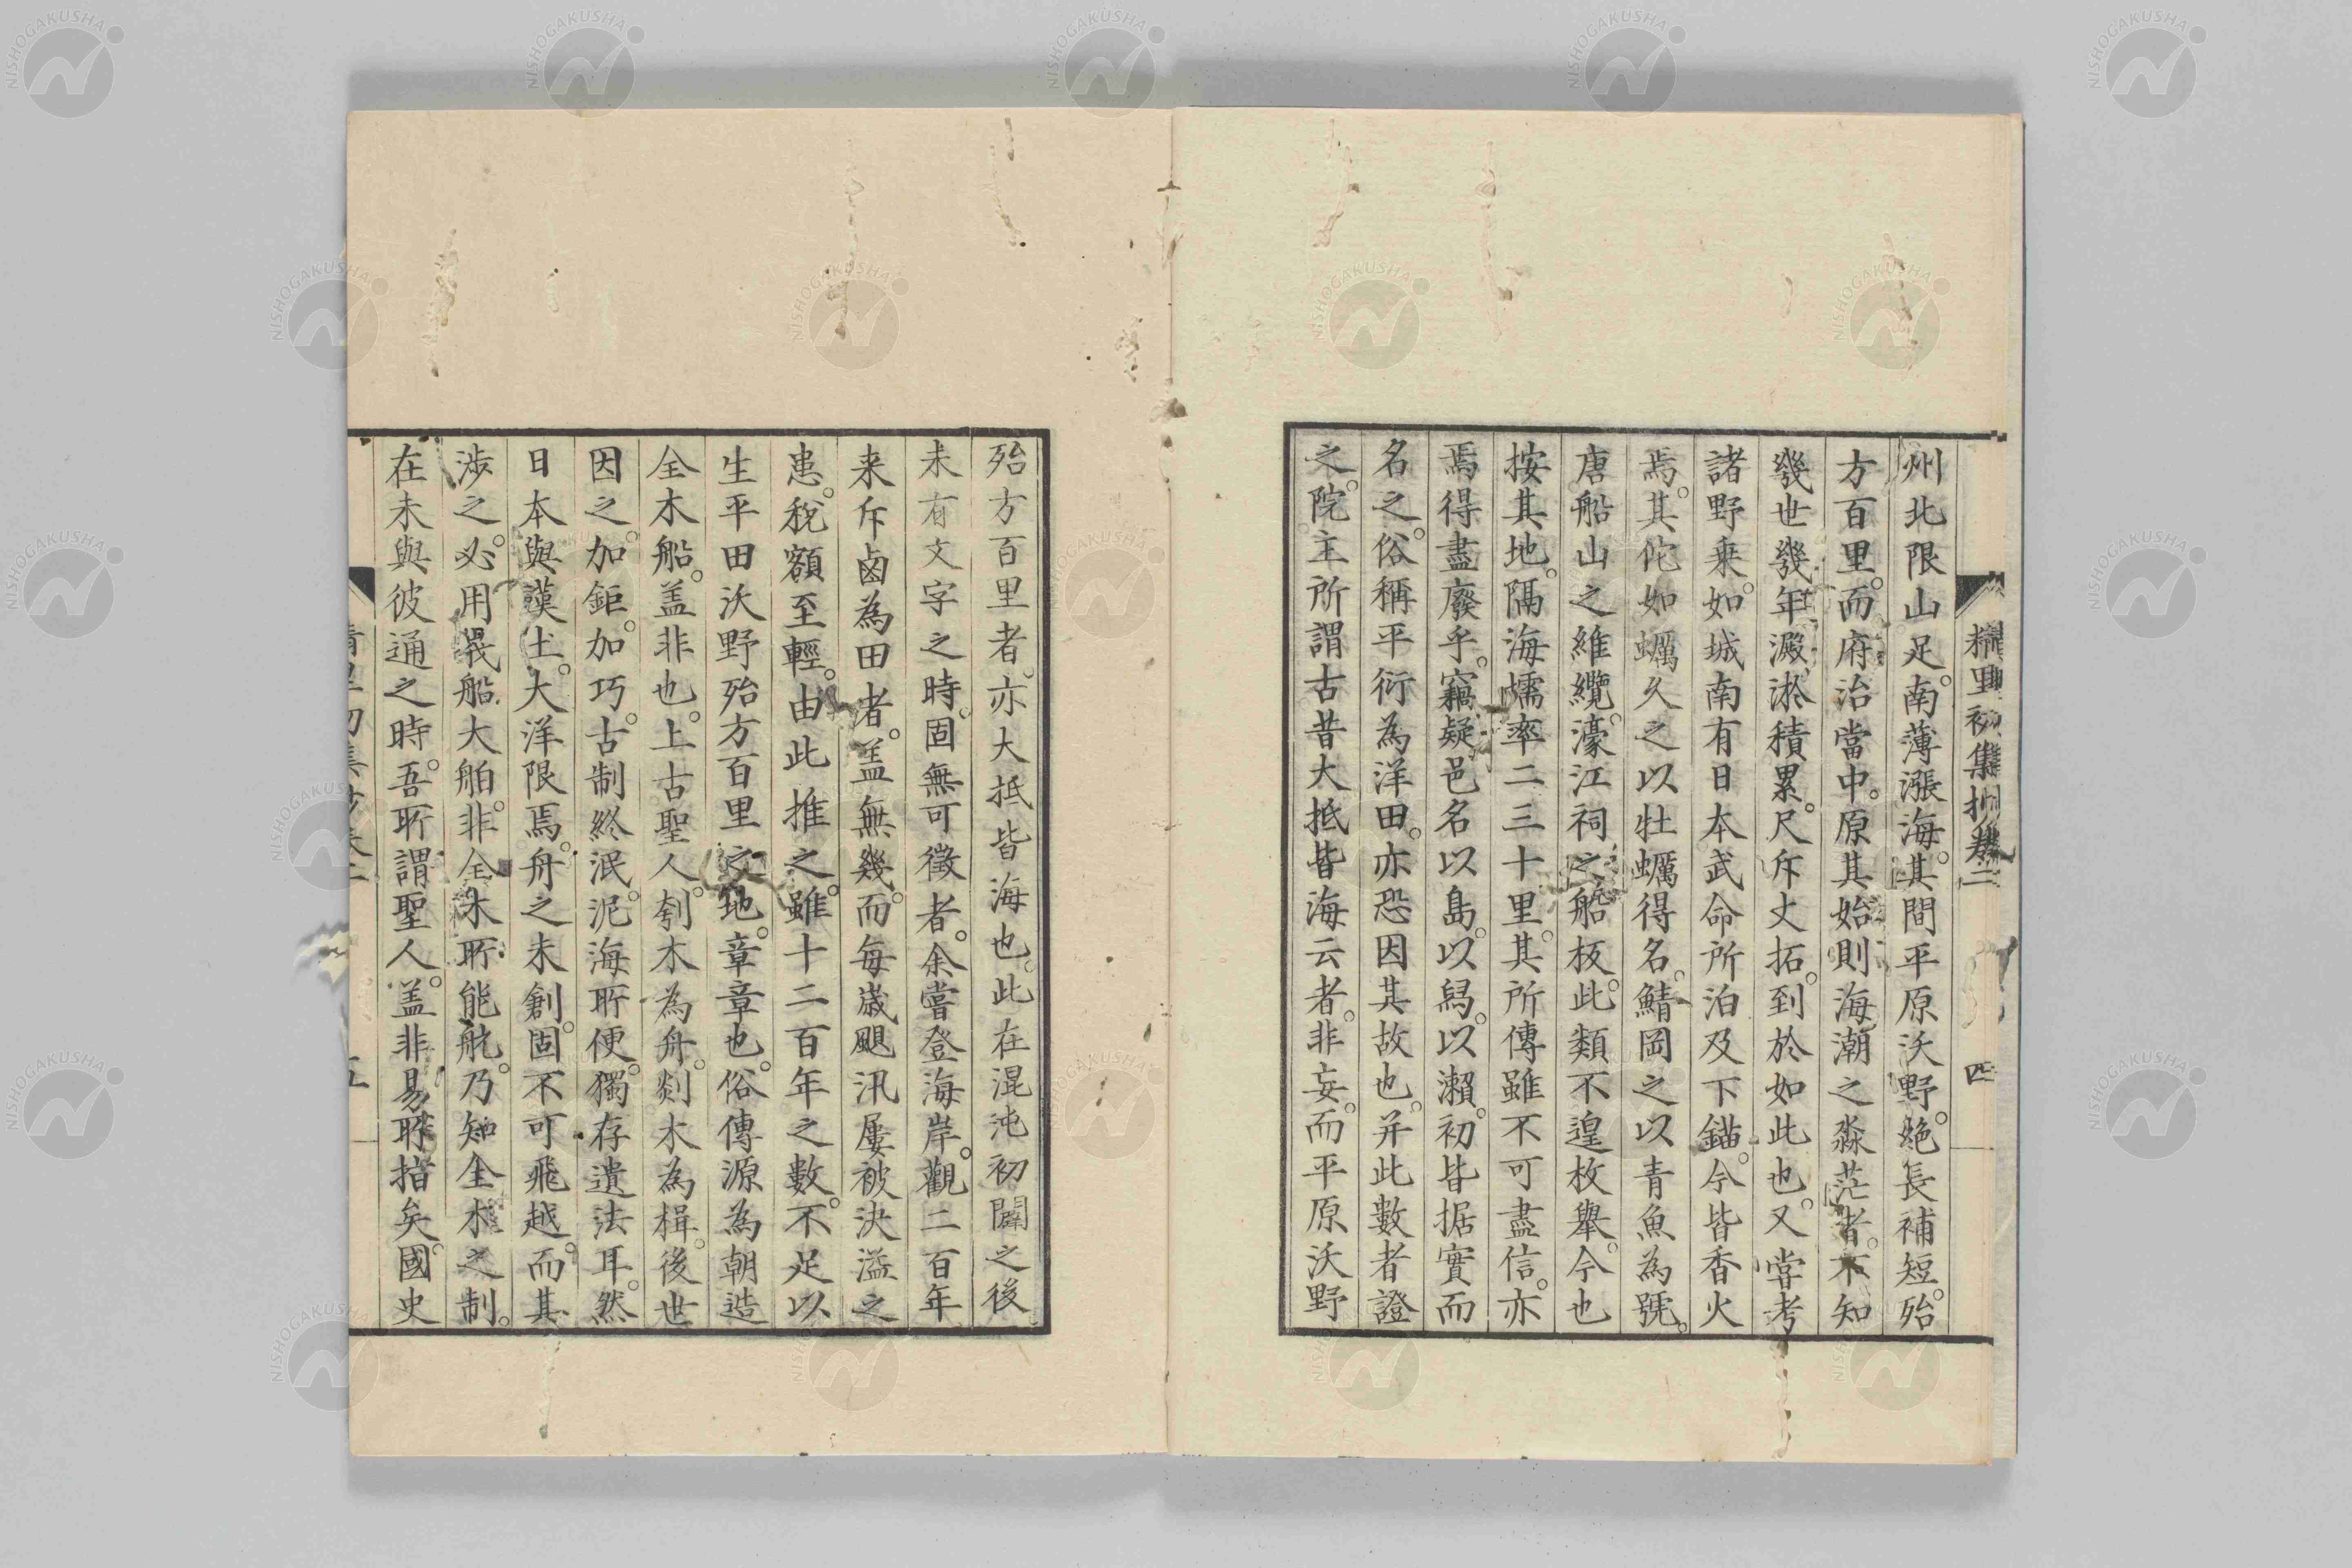 精里初集抄 卷二 四
州北限山足。南薄漲海。其間平原沃野。絶長補短。殆
方百里。而府治當中。原其始則海潮之淼茫者。不知
幾世幾年。澱淤積累。尺斥丈拓。到於如此也。又嘗考
諸野乗。如城南有日本武命所泊及下錨。今皆香火
焉。其佗如蠣久之以牡蠣得名。鯖岡之以青魚為號。
唐船山之維纜。濠江祠之船板。此類不遑枚舉。今也
按其地。隔海壖率二三十里。其所傳雖不可盡信。亦
焉得盡廢乎。竊疑邑名以島。以舄。以瀨。初皆据實而
名之。俗稱平衍為洋田。亦恐因其故也。并此數者證
之。院主所謂古昔大抵皆海云者。非妄。而平原沃野
殆方百里者。亦大抵皆海也。此在混沌初闢之後
未有文字之時。固無可徵者。余嘗登海岸。觀二百年
来斥鹵為田者。盖無幾。而每歲颶汛屢被決溢之
患。稅額至輕。由此推之。雖十二百年之數。不足以
生平田沃野殆方百里之地。章章也。俗傳源為朝造
全木船。盖非也。上古聖人刳木為舟。剡木為楫。後世
因之。加鉅。加巧。古制終泯。泥海所便。獨存遺法耳。然
日本與漢土。大洋限焉。舟之未創。固不可飛越。而其
涉之。必用戎船大舶。非全木所能航。乃知全木之制。
在未與彼通之時。吾所謂聖人。盖非易所指矣。國史
精里初集抄卷二 五
NISHOGAKUSHA